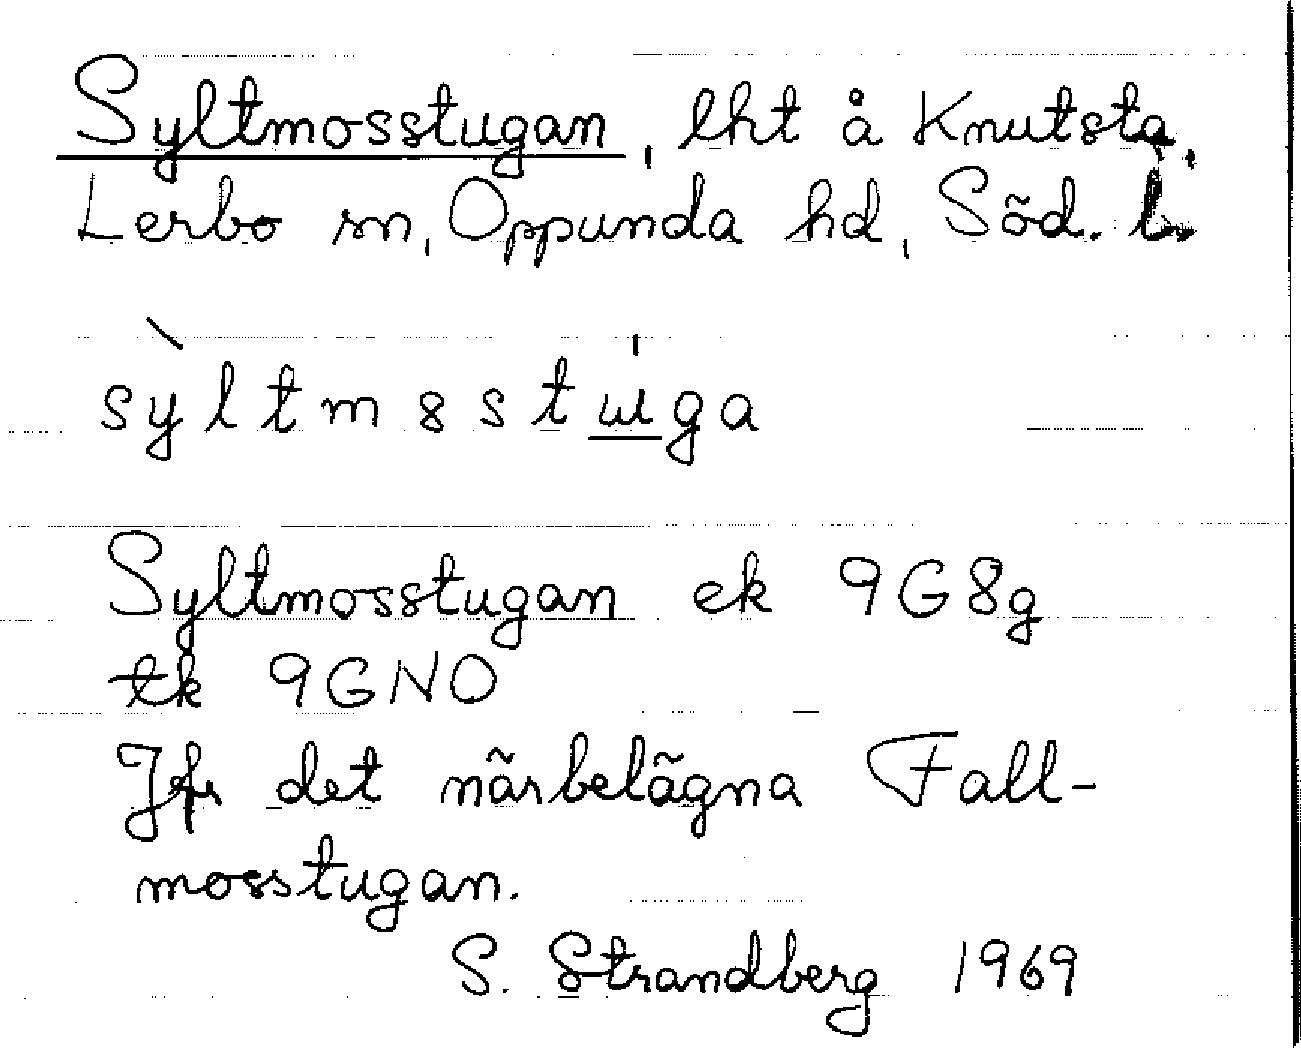 Syltmosstugan, lht å Knutsta,
Lerbo sn, Oppunda hd, Söd. l.
sỳltm8stu̲ga
Syltmosstugan ek 9G8g
tk 9GNO
Jfr det närbelägna Fall-
mosstugan.
S. Strandberg 1969